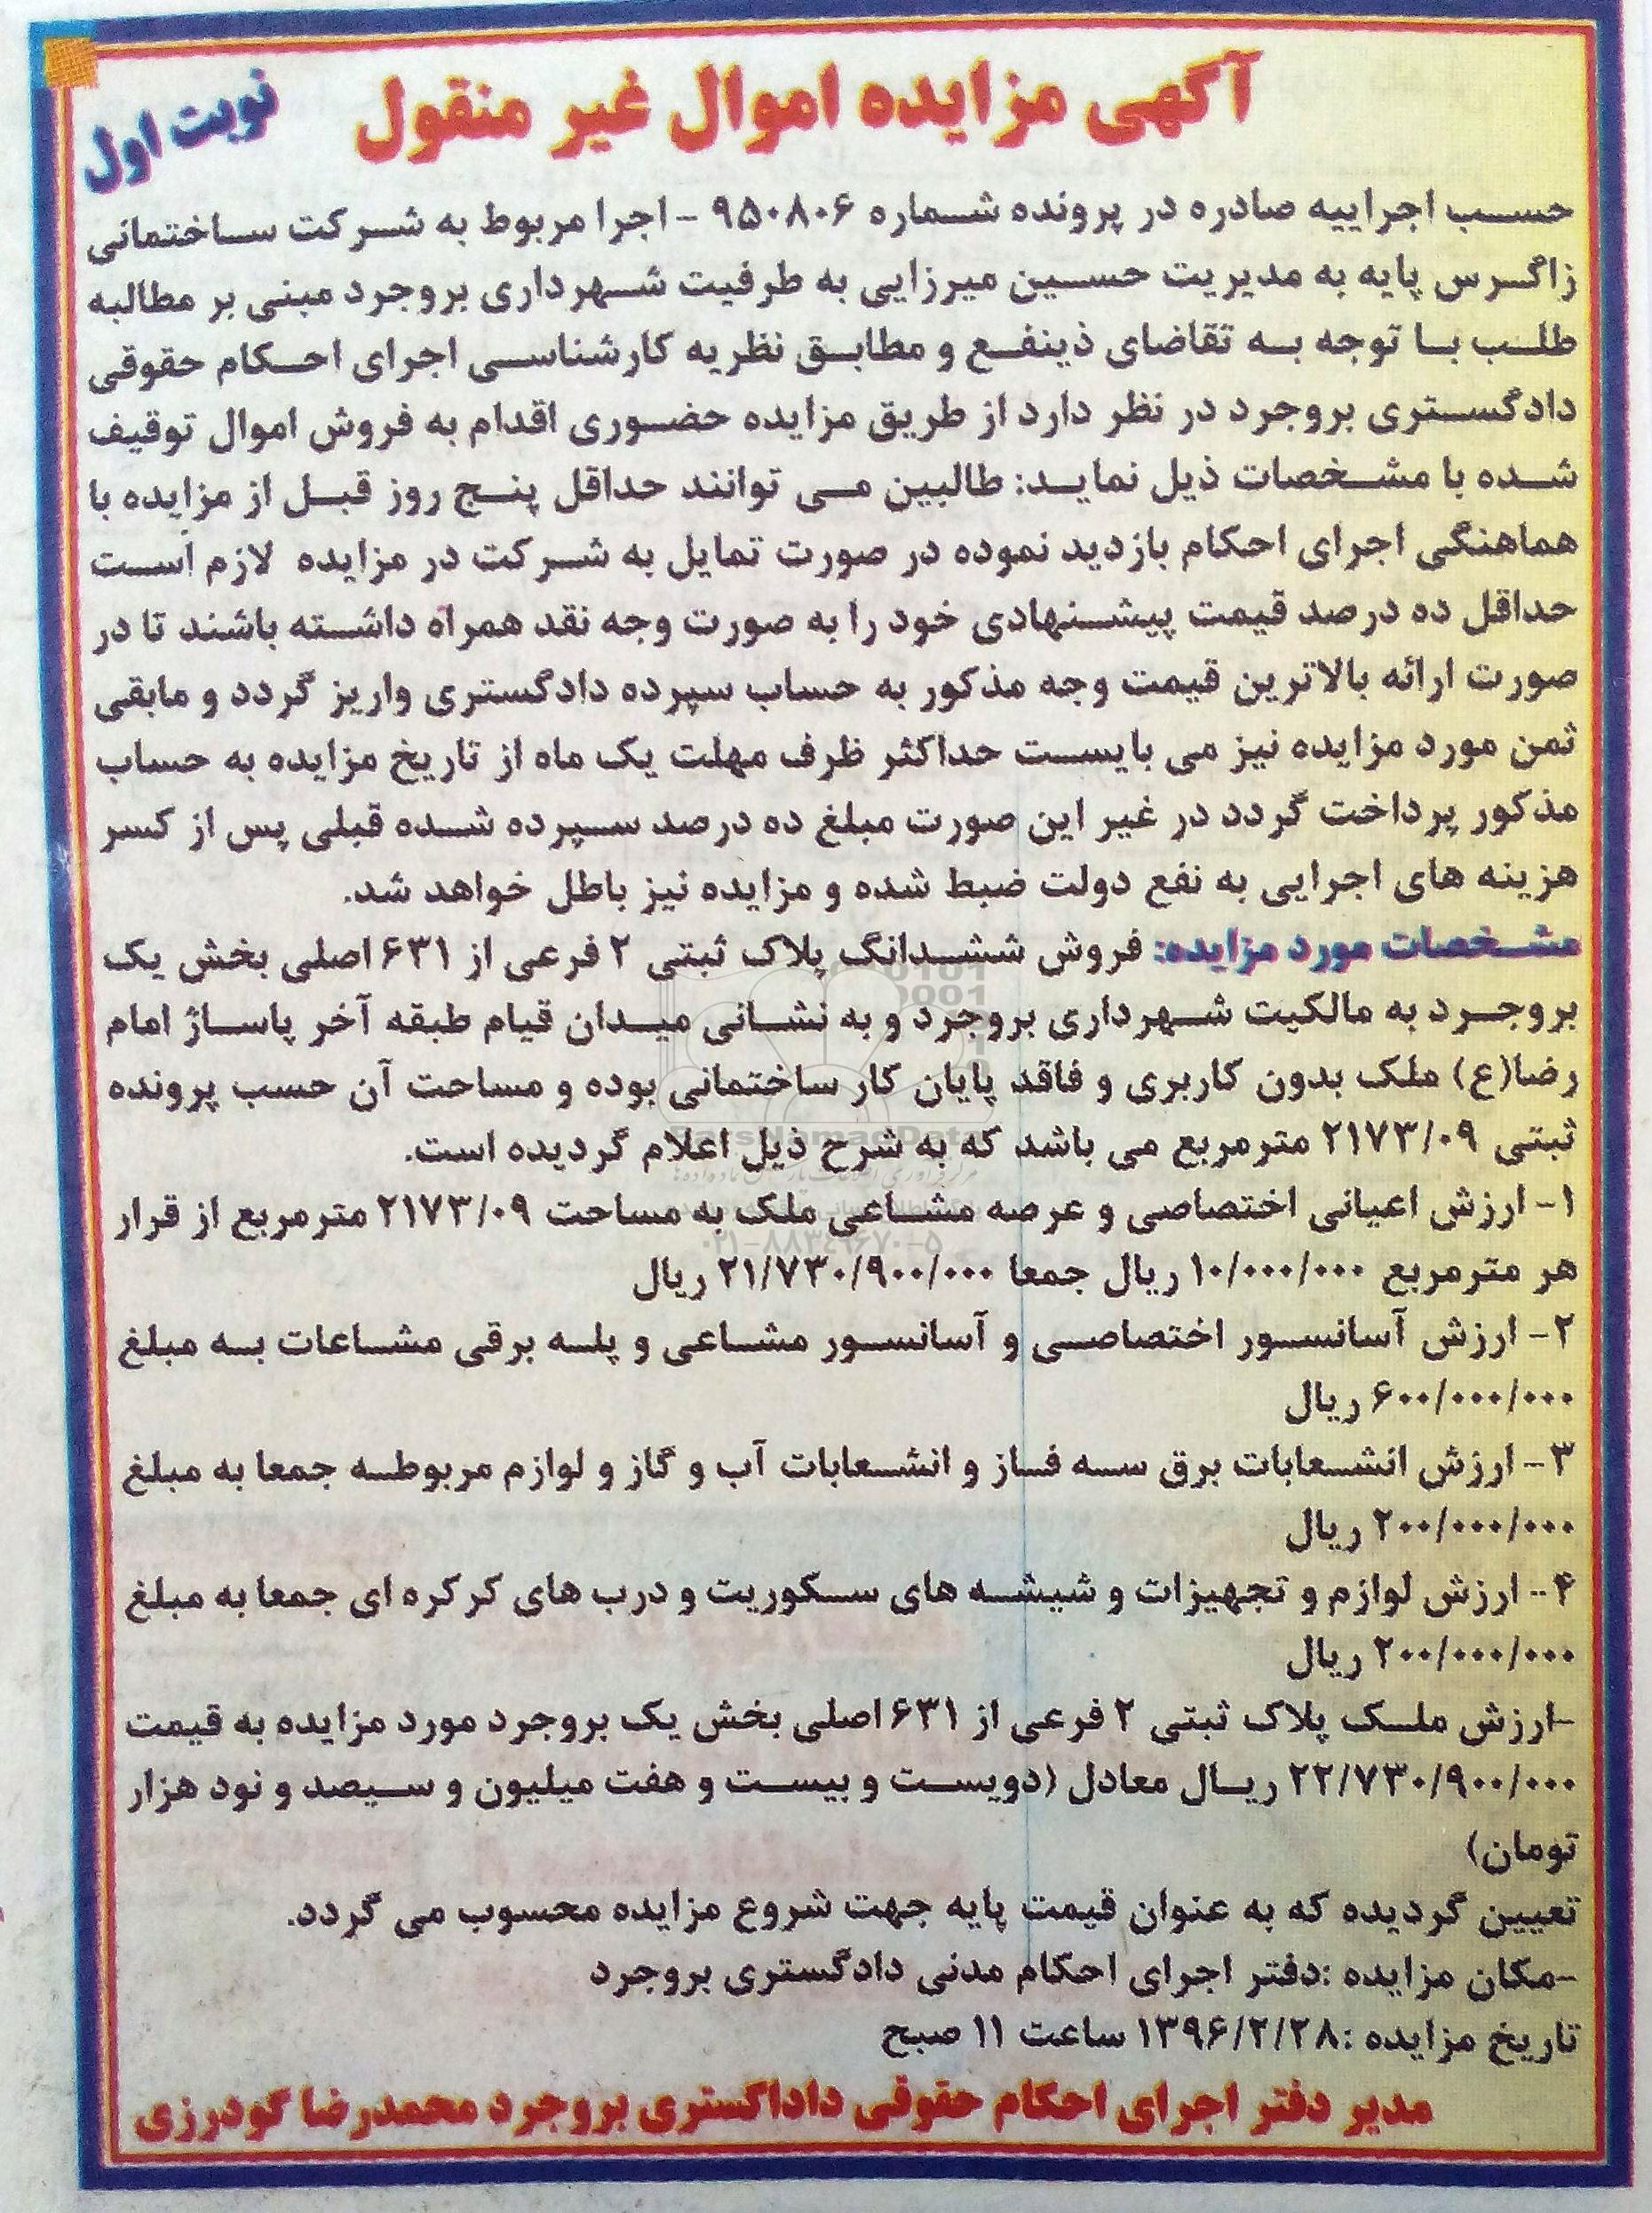 آگهی مزایده اموال غیر منقول
نوبت اول
حسب اجراییه صادره در پرونده شماره ۹۵۰۸۰۶ - اجرا مربوط به شرکت ساختمانی
زاگرس پایه به مدیریت حسین میرزایی به طرفیت شهرداری بروجرد مبنی بر مطالبه
طلب با توجه به تقاضای ذینفع و مطابق نظریه کارشناسی اجرای احکام حقوقی
دادگستری بروجرد در نظر دارد از طریق مزایده حضوری اقدام به فروش اموال توقیف
شده با مشخصات ذیل نماید: طالبین می توانند حداقل پنج روز قبل از مزایده با
هماهنگی اجرای احکام بازدید نموده در صورت تمایل به شرکت در مزایده لازم است
حداقل ده درصد قیمت پیشنهادی خود را به صورت وجه نقد همراه داشته باشند تا در
صورت ارائه بالاترین قیمت وجه مذکور به حساب سپرده دادگستری واریز گردد و مابقی
ثمن مورد مزایده نیز می بایست حداکثر ظرف مهلت یک ماه از تاریخ مزایده به حساب
مذکور پرداخت گردد در غیر این صورت مبلغ ده درصد سپرده شده قبلی پس از کسر
هزینه های اجرایی به نفع دولت ضبط شده و مزایده نیز باطل خواهد شد.
مشخصات مورد مزایده: فروش ششدانگ پلاک ثبتی ۲ فرعی از ۶۳۱ اصلی بخش یک
بروجرد به مالکیت شهرداری بروجرد و به نشانی میدان قیام طبقه آخر پاساژ امام
رضا(ع) ملک بدون کاربری و فاقد پایان کار ساختمانی بوده و مساحت آن حسب پرونده
ثبتی ۲۱۷۳/۰۹ مترمربع می باشد که به شرح ذیل اعلام گردیده است.
۱- ارزش اعیانی اختصاصی و عرصه مشاعی ملک به مساحت ۲۱۷۳/۰۹ مترمربع از قرار
هر مترمربع ۱۰/۰۰۰/۰۰۰ ریال جمعا ۲۱/۷۳۰/۹۰۰/۰۰۰ ریال
۲- ارزش آسانسور اختصاصی و آسانسور مشاعی و پله برقی مشاعات به مبلغ
۶۰۰/۰۰۰/۰۰۰ ریال
۳- ارزش انشعابات برق سه فاز و انشعابات آب و گاز و لوازم مربوطه جمعا به مبلغ
۲۰۰/۰۰۰/۰۰۰ ریال
۴- ارزش لوازم و تجهیزات و شیشه های سکوریت و درب های کرکره ای جمعا به مبلغ
۲۰۰/۰۰۰/۰۰۰ ریال
-ارزش ملک پلاک ثبتی ۲ فرعی از ۶۳۱ اصلی بخش یک بروجرد مورد مزایده به قیمت
۲۲/۷۳۰/۹۰۰/۰۰۰ ریال معادل (دویست و بیست و هفت میلیون و سیصد و نود هزار
تومان)
تعیین گردیده که به عنوان قیمت پایه جهت شروع مزایده محسوب می گردد.
-مکان مزایده :دفتر اجرای احکام مدنی دادگستری بروجرد
تاریخ مزایده :۱۳۹۶/۲/۲۸ ساعت ۱۱ صبح
مدیر دفتر اجرای احکام حقوقی داداگستری بروجرد محمدرضا گودرزی
ParsNamadData
۰۲۱-۸۸۳۴۹۶۷۰-۵